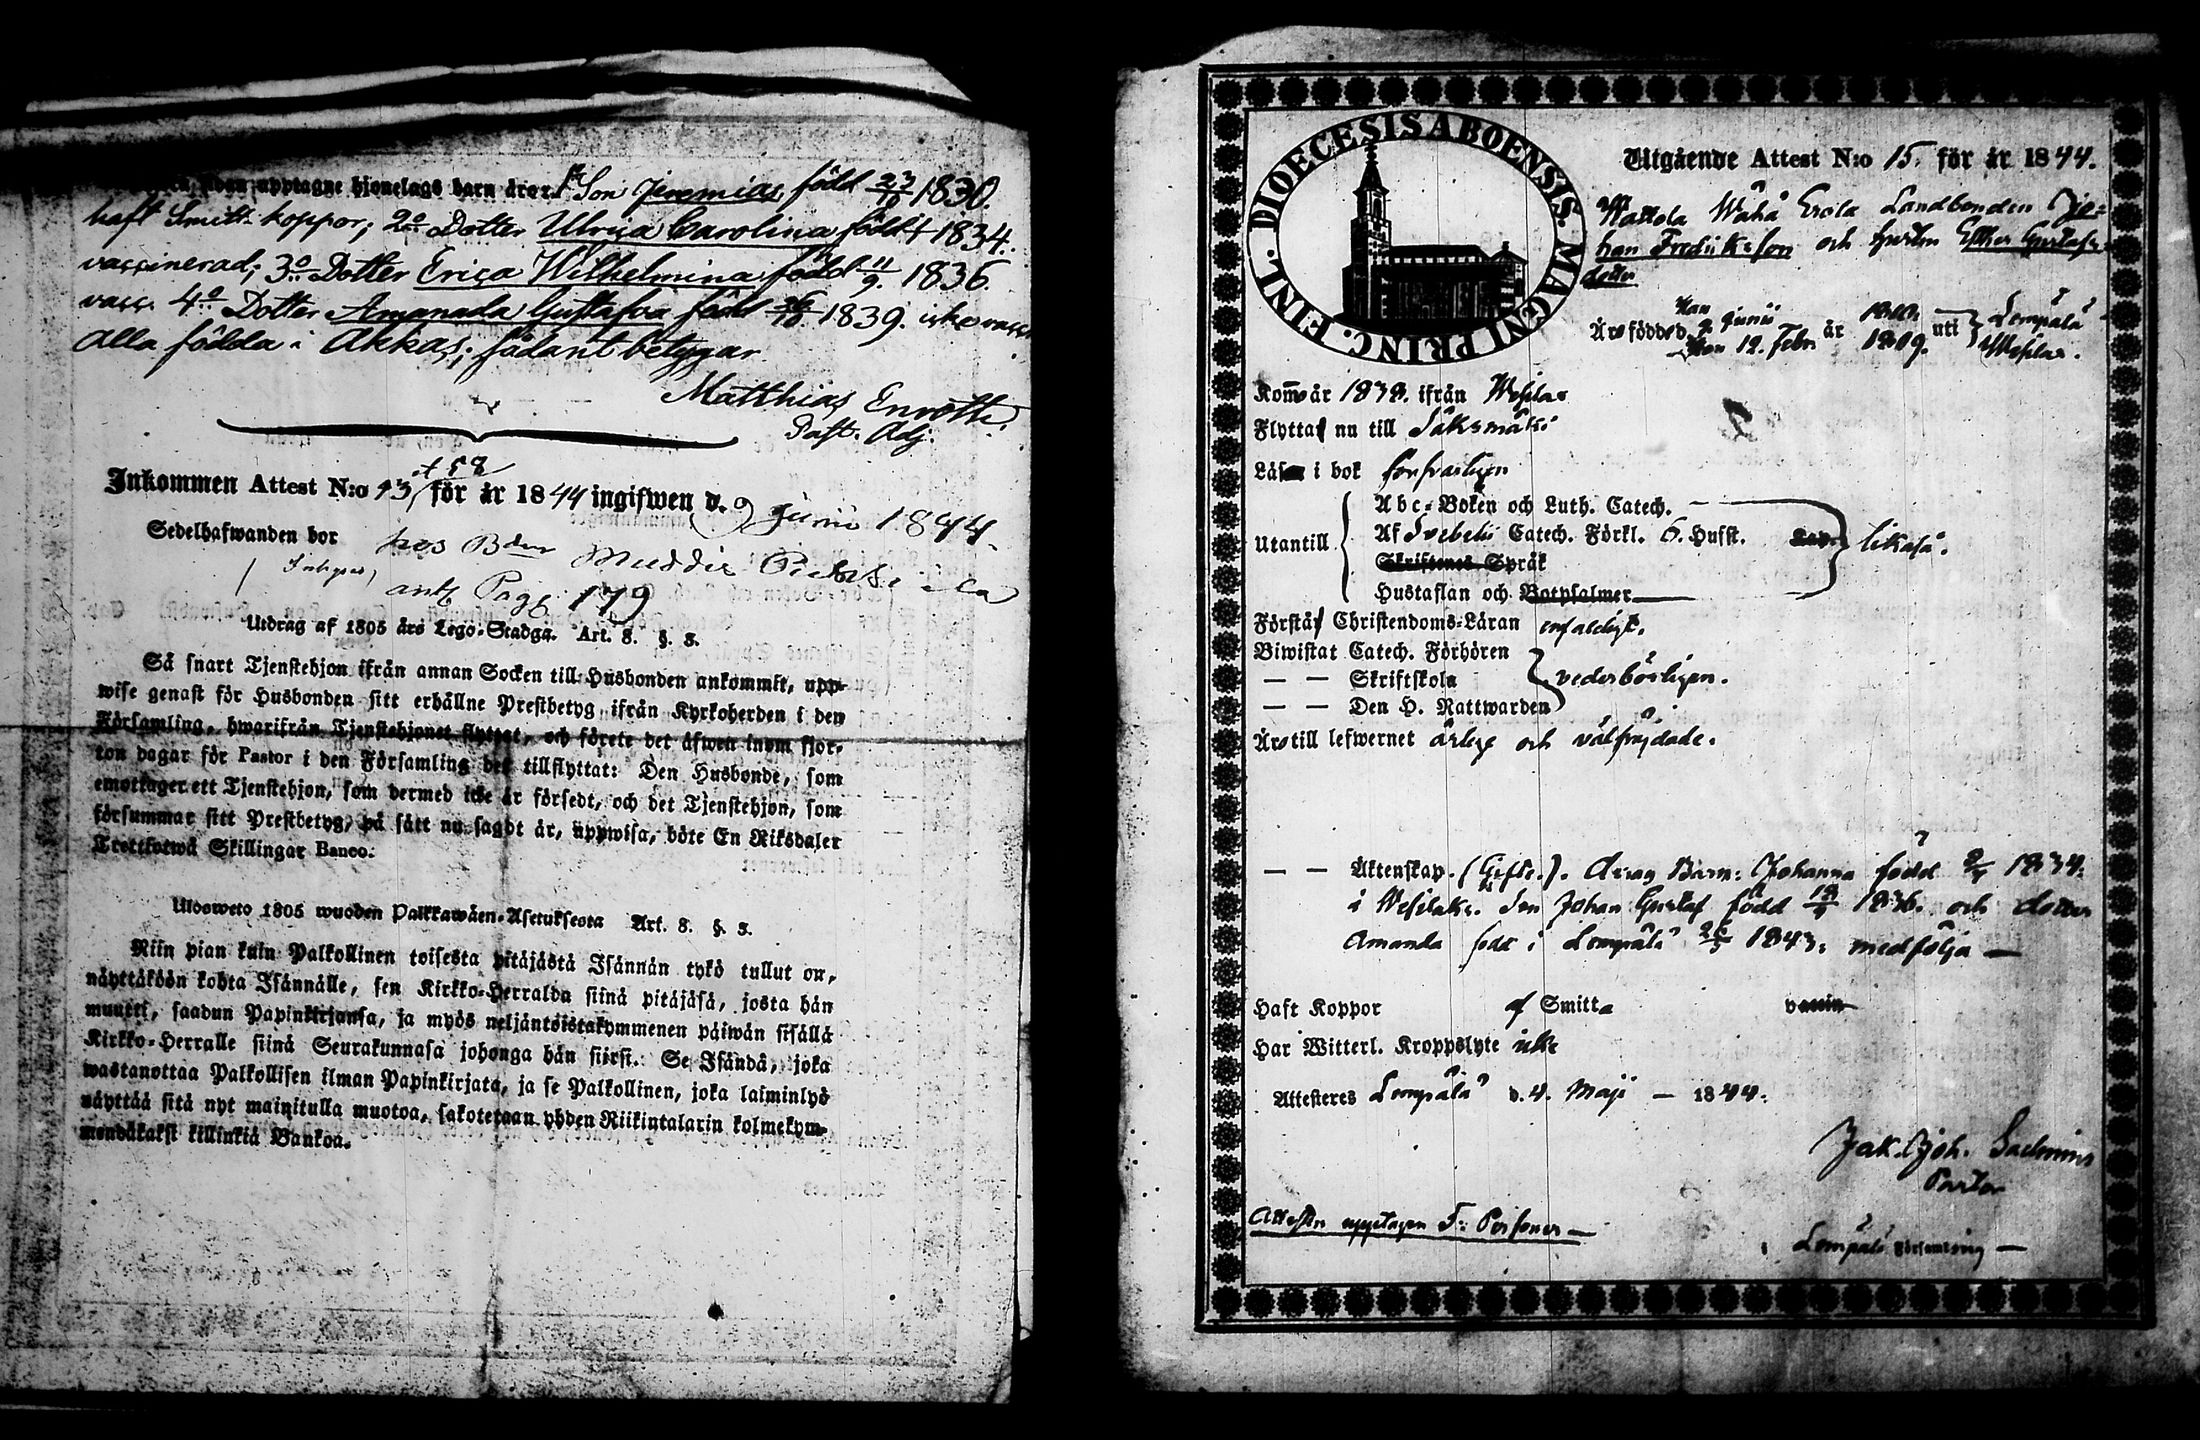 upptagne hjonelags barn äro: 1º Son Jeremias född 23/10 1830.
haft Smitt-koppor; 2º Dotter Ulrica Carolina född 1834.
vaccinerad; 3º Dotter Erica Wilhelmina född 11/9 1836
vacc. 4º Dotter Amanada Gustafva född 1839. icke vacc
alla födda i Akkas; sådant betygar
Matthias Enroth.
Past. Adj.
Inkommen Attest N:o 13, för år 1844 ingifwen d. 9 Junii 1844.
Sedelhafwanden bor hos
ant Pag 179
Utdrag af 1805 års Lego-Stadga. Art. 8. §. 3.
Så snart Tjenstehjon ifrån annan Socken till Husbonden ankommit, upp-
wise genast för Husbonden sitt erhållne Prestbetyg ifrån Kyrkoherden i den
Församling, hwarifrån Tjenstehjonet flyttat, och förete det äfwen inom fjor-
ton dagar för Pastor i den Församling det tillflyttat: Den Husbonde, som
emottager ett Tjenstehjon, som dermed icke är försedt, och det Tjenstehjon, som
försummar sitt Prestbetyg, på sätt nu sagdt är, uppwisa, böte En Riksdaler
Trettiotwå Skillingar Banco.
Ulosweto 1805 wuoden Palkkawäen-Asetuksesta Art. 8. §. 3.
Niin pian kuin Palkollinen toisesta pitäjästä Isännän tykö tullut on,
näyttäköön kohta Isännälle, sen Kirkko-Herralda siinä pitäjäsä, josta hän
muutti, saadun Papinkirjansa, ja myös neljäntoistakymmenen päiwän sisällä
Kirkko-Herralle siinä Seurakunnasa johonga hän siirsi. Se Isändä, joka
wastanottaa Palkollisen ilman Papinkirjata, ja se Palkollinen, joka laiminlyö
näyttää sitä nyt mainitulla muotoa, sakotetaan yhden Riikintalarin kolmekym-
mendäkaksi killinkiä Bankoa.
DIOECESIS ABOENSIS. MAGNI PRINC. FINL.
Utgående Attest N:o 15. för år 1844.
Landbonden Jo-
han Fredriksson och hustru Esther Gustafs
dotter
Äro födde d. Han Junii år uti Lempälä
Hon 12. Febr. 1809. Wesilax.
Kommo år 1838. ifrån Wesilax
Flytta nu till Säksmäki
Läsa i bok försvarligen
Utantill Abc-Boken och Luth. Catech.
Af Svebelii Catech. Förkl. 6. Hufst. likaså.
Skriftenes Språk
Hustaflan och Botpsalmer
Förstå Christendoms-Läran enfaldigt.
Biwistat Catech. Förhören
— — Skriftskola vederbörligen.
— — Den H. Nattwarden
Äro till lefwernet ärlige och välfrejdade.
— — Äktenskap. (Gifte.). Deras Barn: Johanna född 1834.
i Wesilaks. Son Johan Gustaf född 1836. och dotter
Amanda född i Lempälä 1843: medfölja —
Haft Koppor af Smitta vaccin
Har Witterl. Kroppslyte icke
Attesteres Lempälä d. 4. Maji — 1844.
Jak. Joh.
Pastor
Attesten upptagen 5: Personer —
i Lempälä Församling —